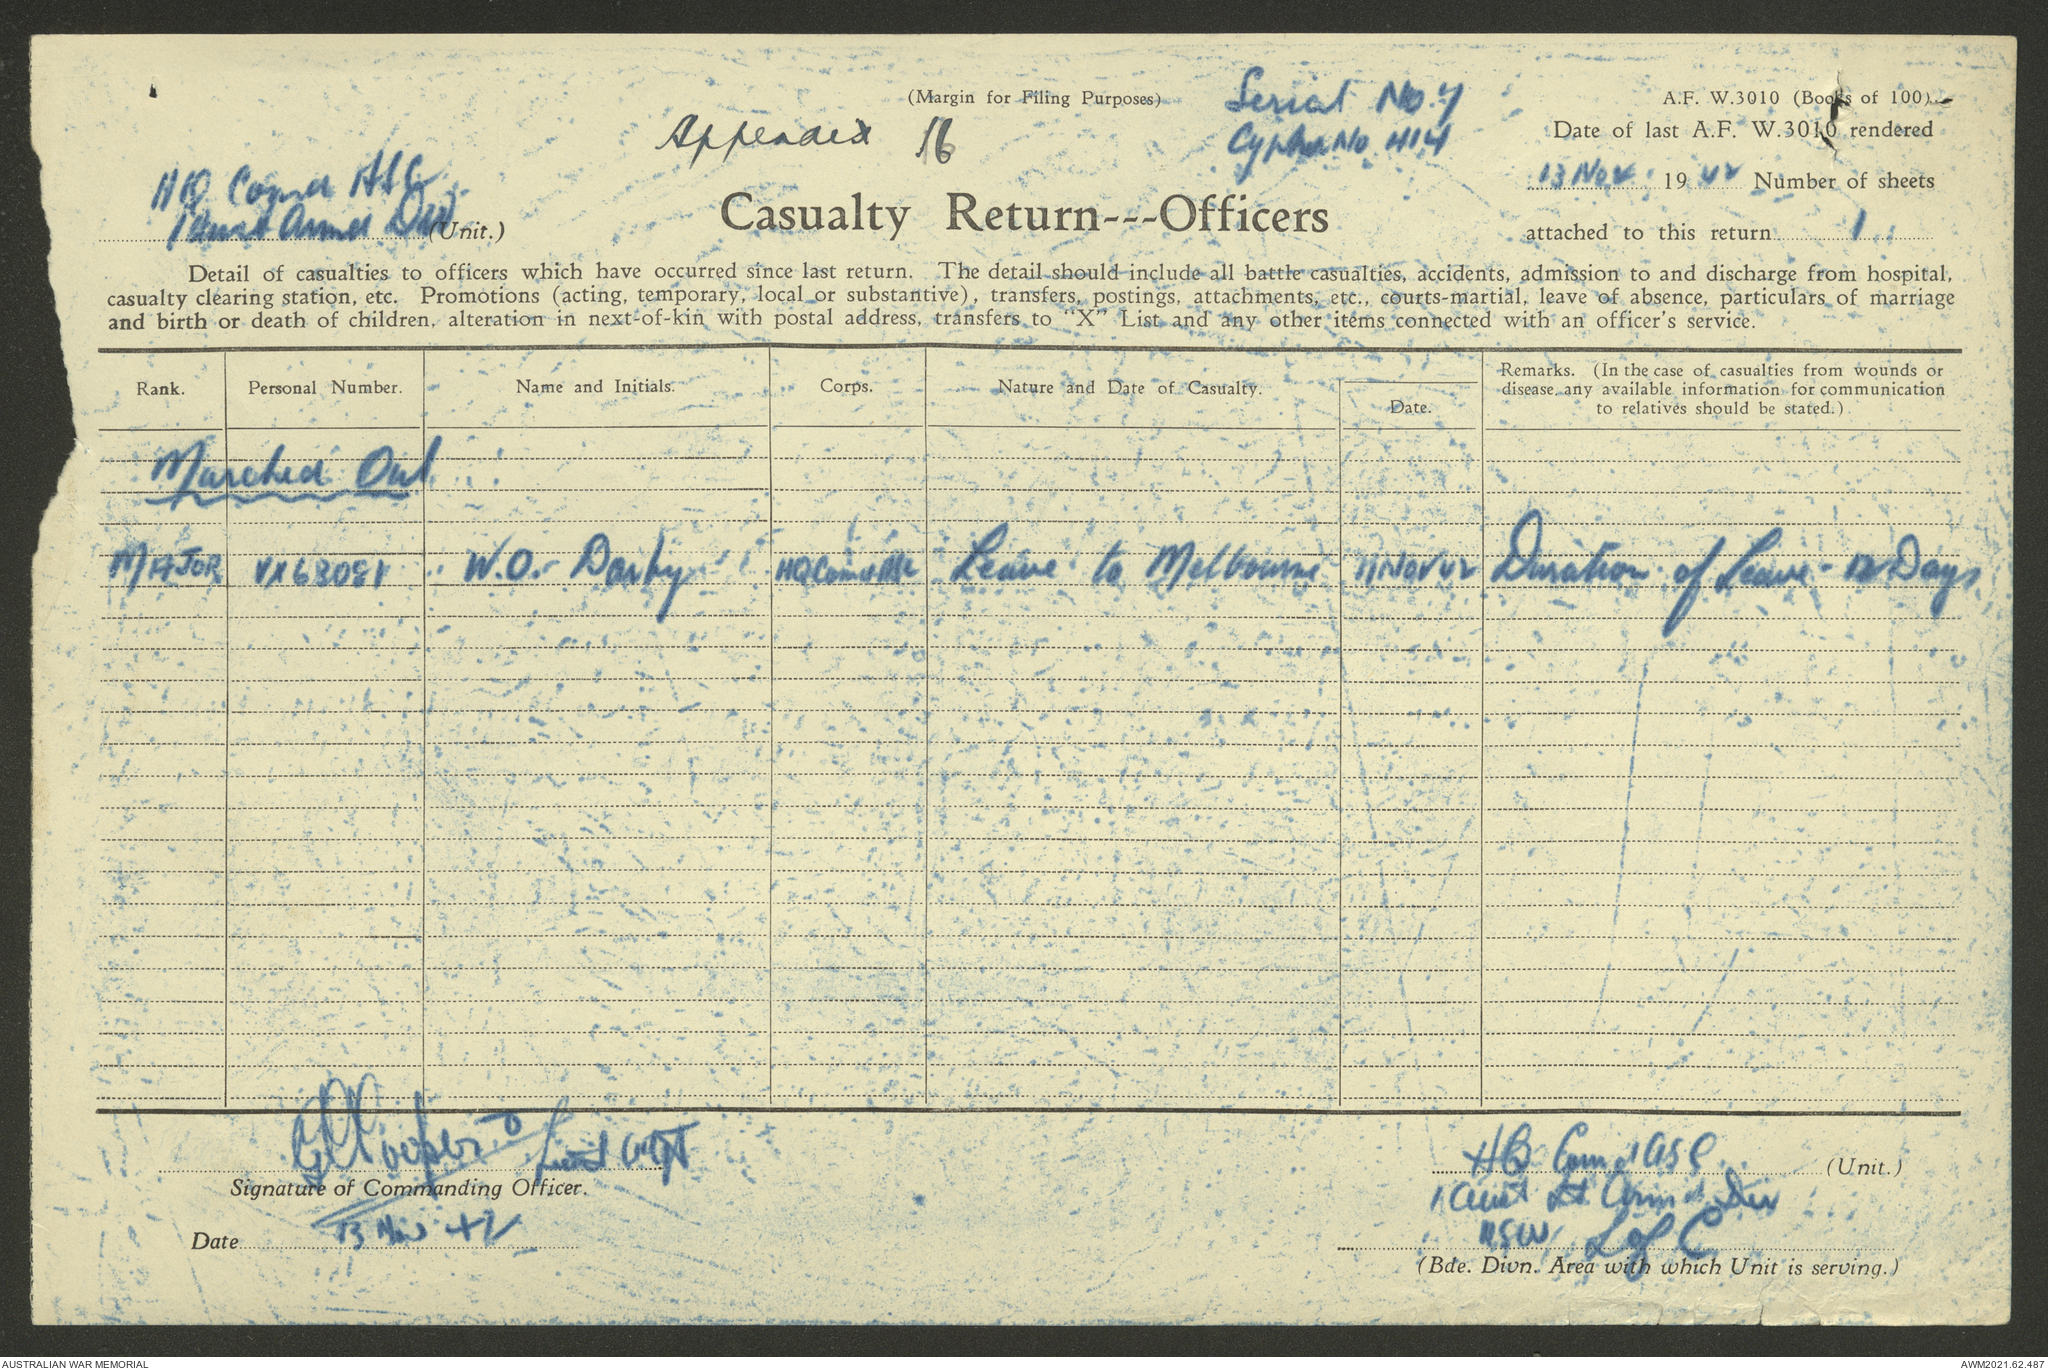 (Margin for Filing Purposes)
Serial No. 7
A.F. W.3010 (Books of 100)
Appendix 16
Cypher No 414
Date of last A.F. W.3010 rendered
13 Nov 1942 Number of sheets
attached to this return 1
HQ Comd ASC
1 Aust Armd Div (Unit.)
Casualty Return---Officers
Detail of casualties to officers which have occurred since last return. The detail should include all battle casualties, accidents, admission to and discharge from hospital,
casualty clearing station, etc. Promotions (acting, temporary, local or substantive), transfers, postings, attachments, etc., courts-martial, leave of absence, particulars of marriage
and birth or death of children, alteration in next-of-kin with postal address, transfers to "X" List and any other items connected with an officer's service.
Rank. Personal Number. Name and Initials. Corps. Nature and Date of Casualty. Date.
Remarks. (In the case of casualties from wounds or
disease, any available information for communication
to relatives should be stated.)
Marched Out
MAJOR VX63081 W.O. Darby HQ Comd Leave to Melbourne 11 Nov 42 Duration of Leave - 12 Days
Signature of Commanding Officer.
Date 13 Nov 42
HQ Comd ASC (Unit.)
1 Aust Armd Div
NSW L of C
(Bde. Divn. Area with which Unit is serving.)
AUSTRALIAN WAR MEMORIAL
AWM2021.62.487